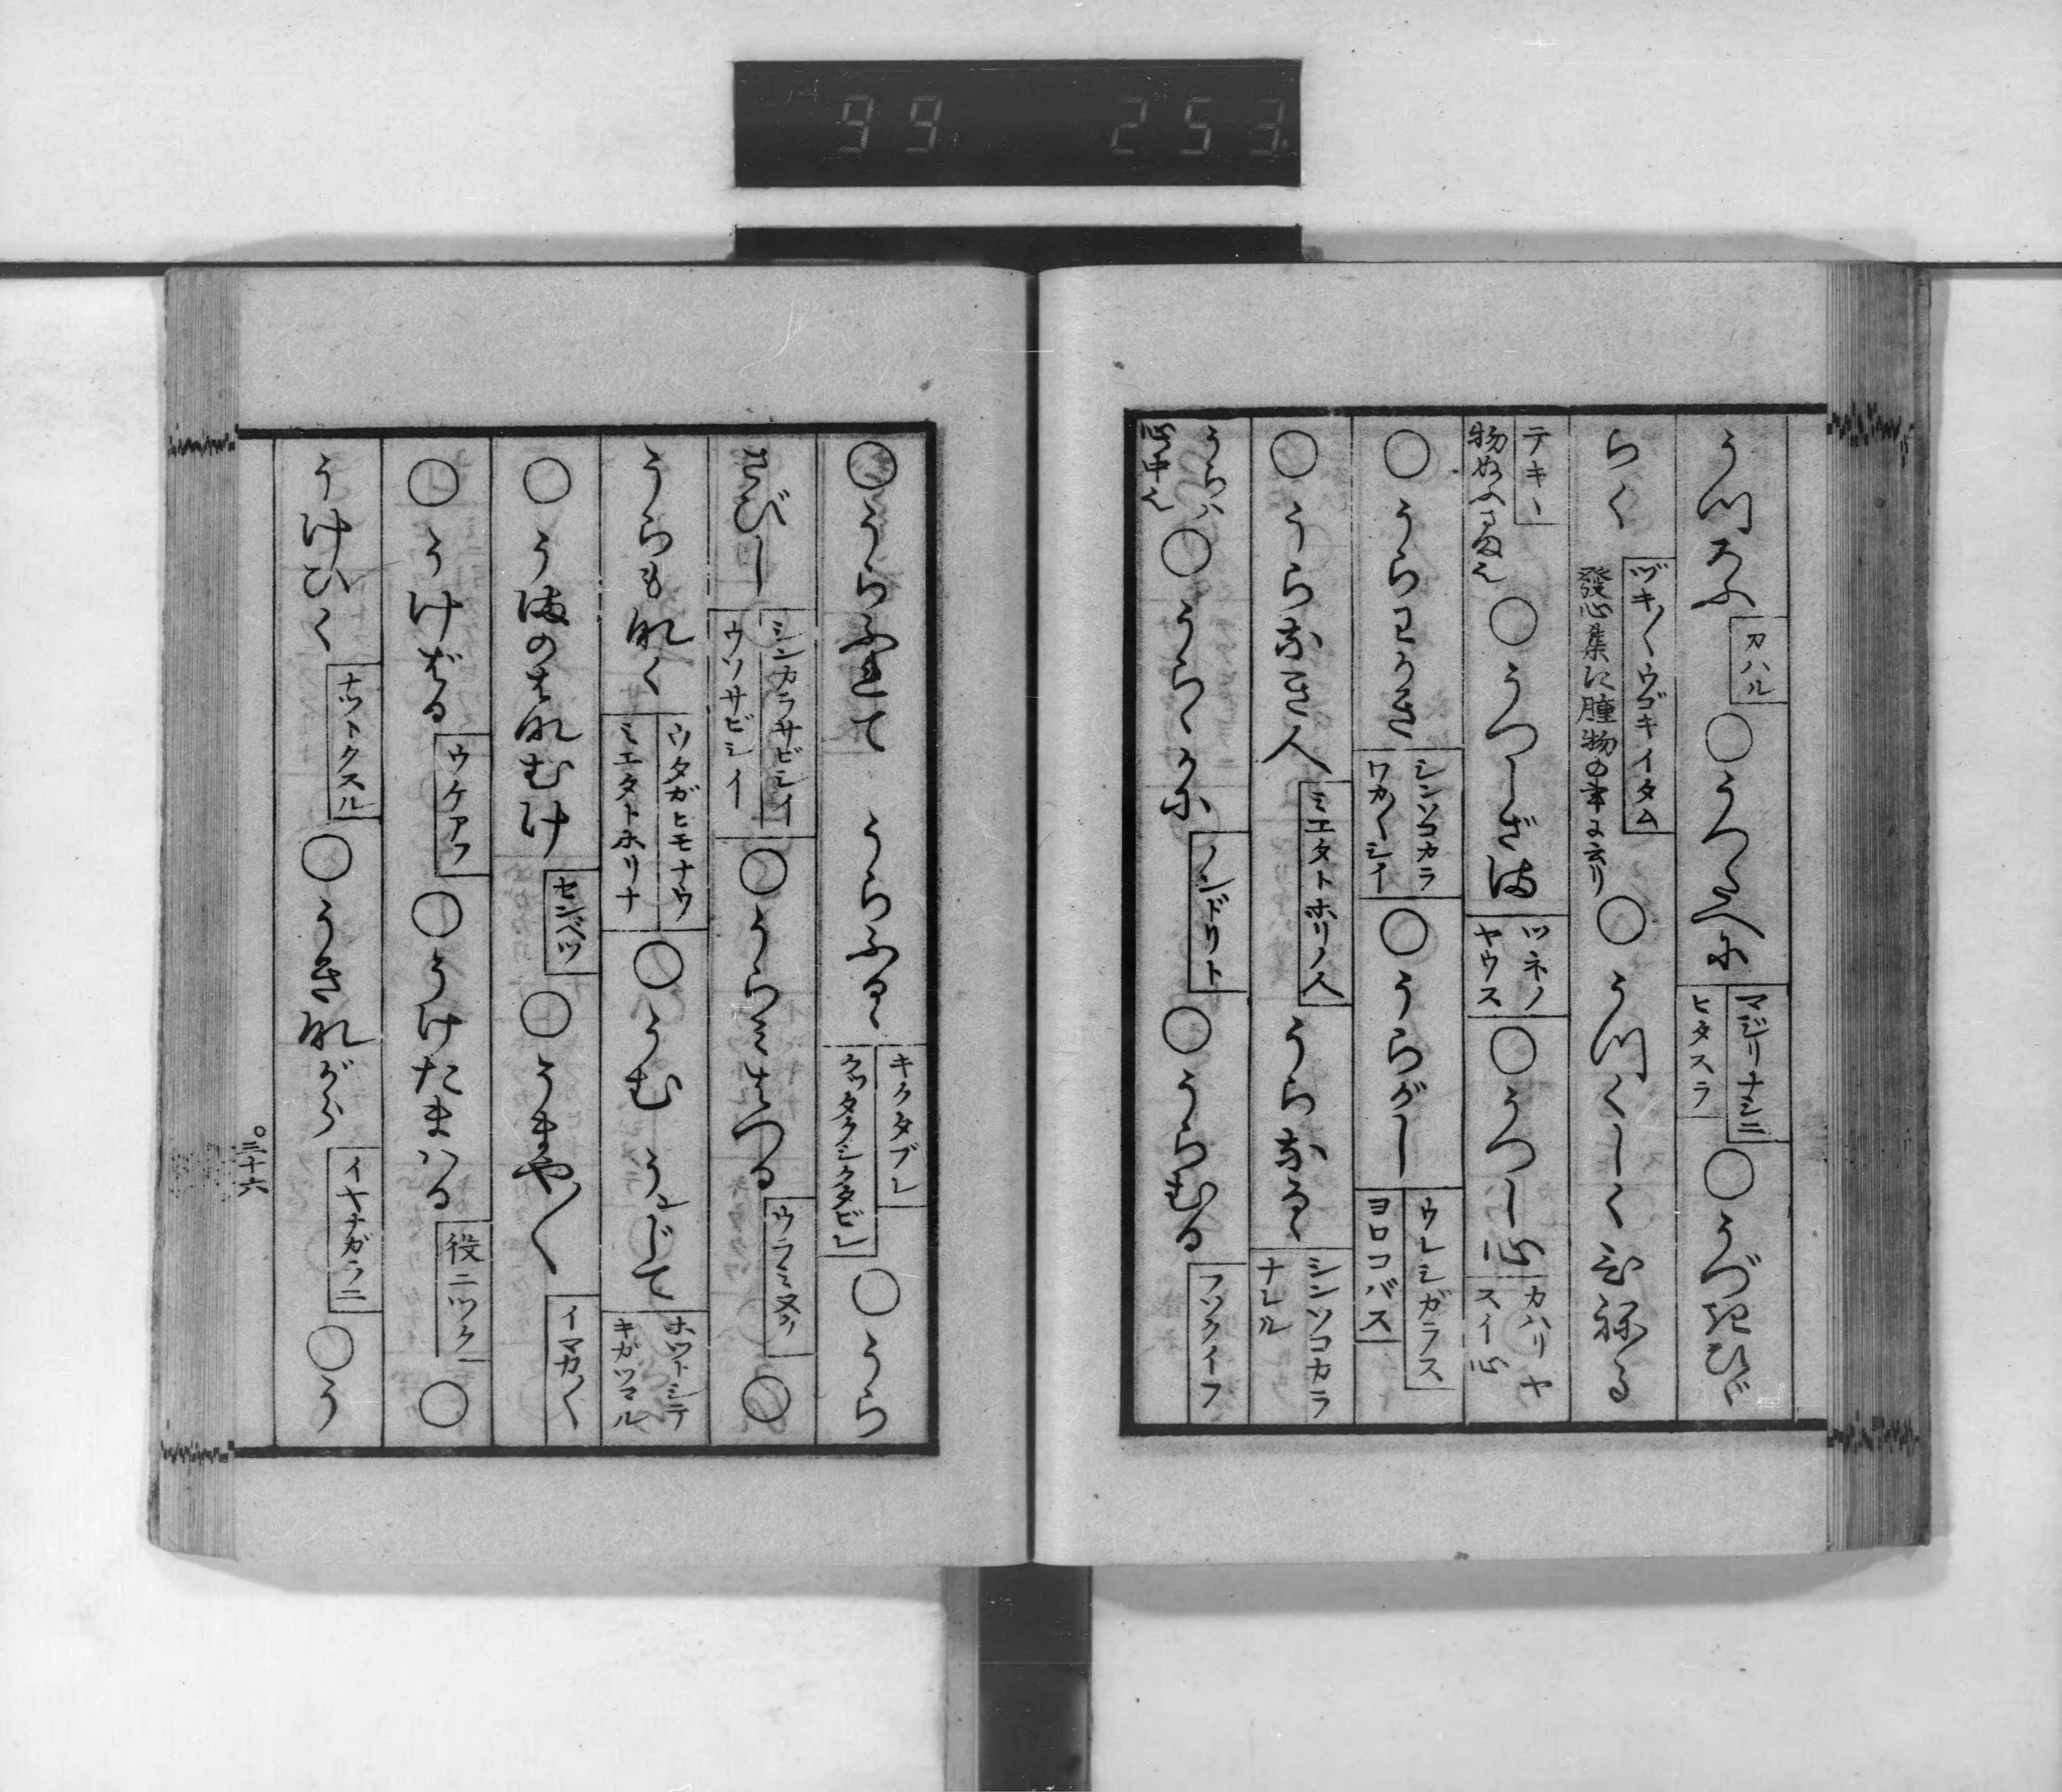 99 253
うつろふ カハル ○うつたへに マジリナシニ ヒタスラ ○うづきひゞ
らく ヅキ〳〵ウゴキイタム 發心集に腫物の事に云り ○うつくしく
テキヽ ○うつしざま ツネノヤウス ○うつし心 カハリヤスイ心
○うらわかき シンソコカラワカ〳〵シイ ○うらがし ウレシガラス ヨロコバス
○うらなき人 ミエタトホリノ人 うらなる シンソコカラナレル
うらハ心中也 ○うらゝかに ノンドリト ○うらむる フソクイフ
○うらふれて うらふるゝ キクタブレ クツタクシクタビレ ○うら
さびし シンカラサビシイ ウソサビシイ ○うらミはつる ウラミヌク ○
うらもなく ウタガヒモナウ ミエタトホリナ ○うむ うんじて ホツトシテ キガツマル
○うまのはなむけ センベツ ○うまや〳〵 イマカ〳〵
○うけばる ウケアフ ○うけたまハる 役ニツク ○
うけひく ナツトクスル ○うきながら イヤナガラニ ○う
三十六